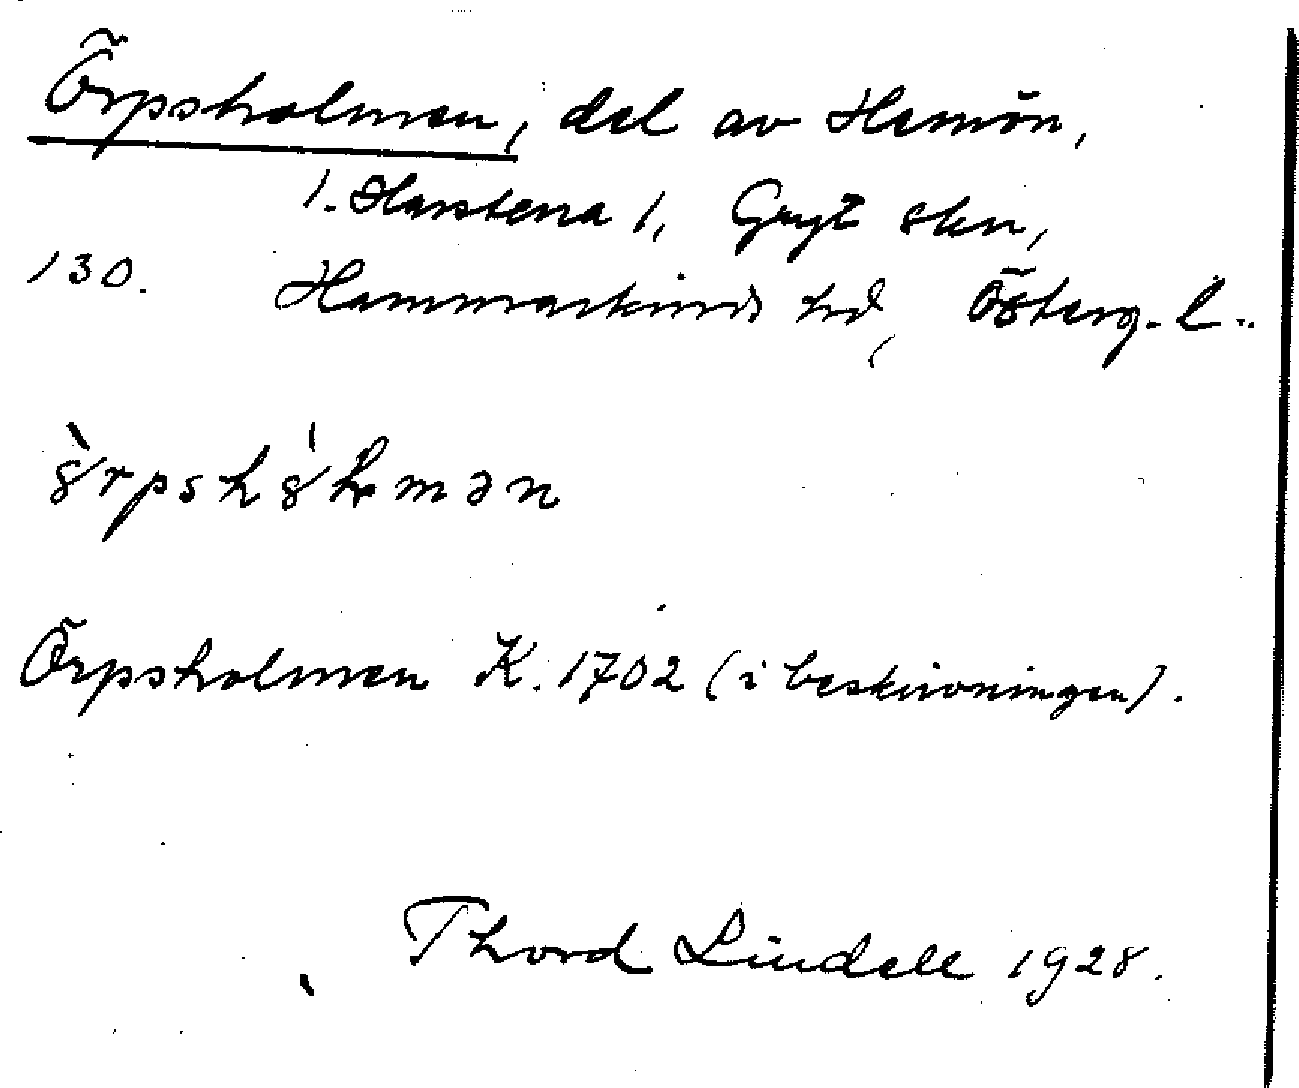 Örpsholmen, del av Hemön,
1. Harstena 1, Gryt skn,
130. Hammarkinds hd, Österg. l.
Örpsholmen K. 1702 (i beskrivningen).
Thord Lindell 1928.